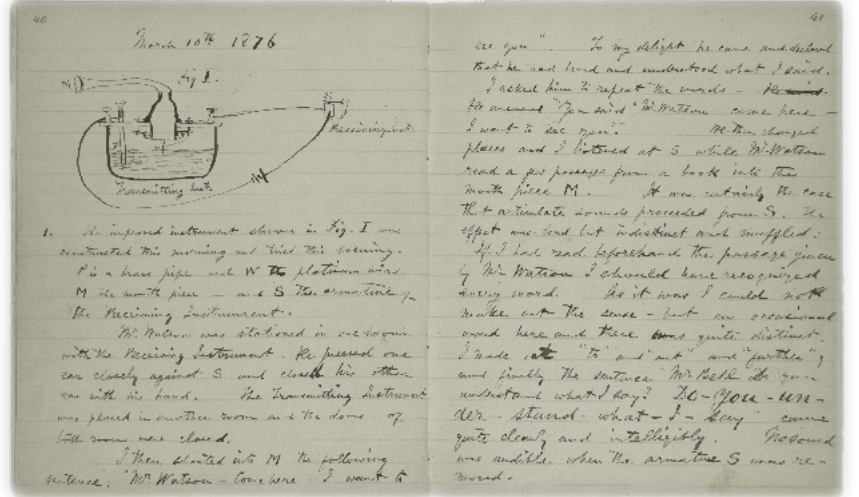 40
March 10th 1876
Fig 1.
M
S
Receiving Inst.
Transmitting Inst
1. The improved instrument shown in Fig. I was
constructed this morning and tried this evening.
P is a brass pipe and W the platinum wire
M the mouth piece — and S the armature of
the Receiving Instrument.
Mr. Watson was stationed in one room
with the Receiving Instrument. He pressed one
ear closely against S and closed his other
ear with his hand. The Transmitting Instrument
was placed in another room and the doors of
both rooms were closed.
I then shouted into M the following
sentence: "Mr. Watson — Come here — I want to
41
see you". To my delight he came and declared
that he had heard and understood what I said.
I asked him to repeat the words — He said
He answered "You said "Mr. Watson — come here —
I want to see you"." We then changed
places and I listened at S while Mr. Watson
read a few passages from a book into the
mouth piece M. It was certainly the case
that articulate sounds proceeded from S. The
effect was loud but indistinct and muffled.
If I had read beforehand the passage given
by Mr. Watson I should have recognized
every word. As it was I could not
make out the sense — but an occasional
word here and there was quite distinct.
I made out "to" and "out" and "further";
and finally the sentence "Mr. Bell Do you
understand what I say? Do — you — un —
der — stand — what — I — say" came
quite clearly and intelligibly. No sound
was audible when the armature S was re-
moved.